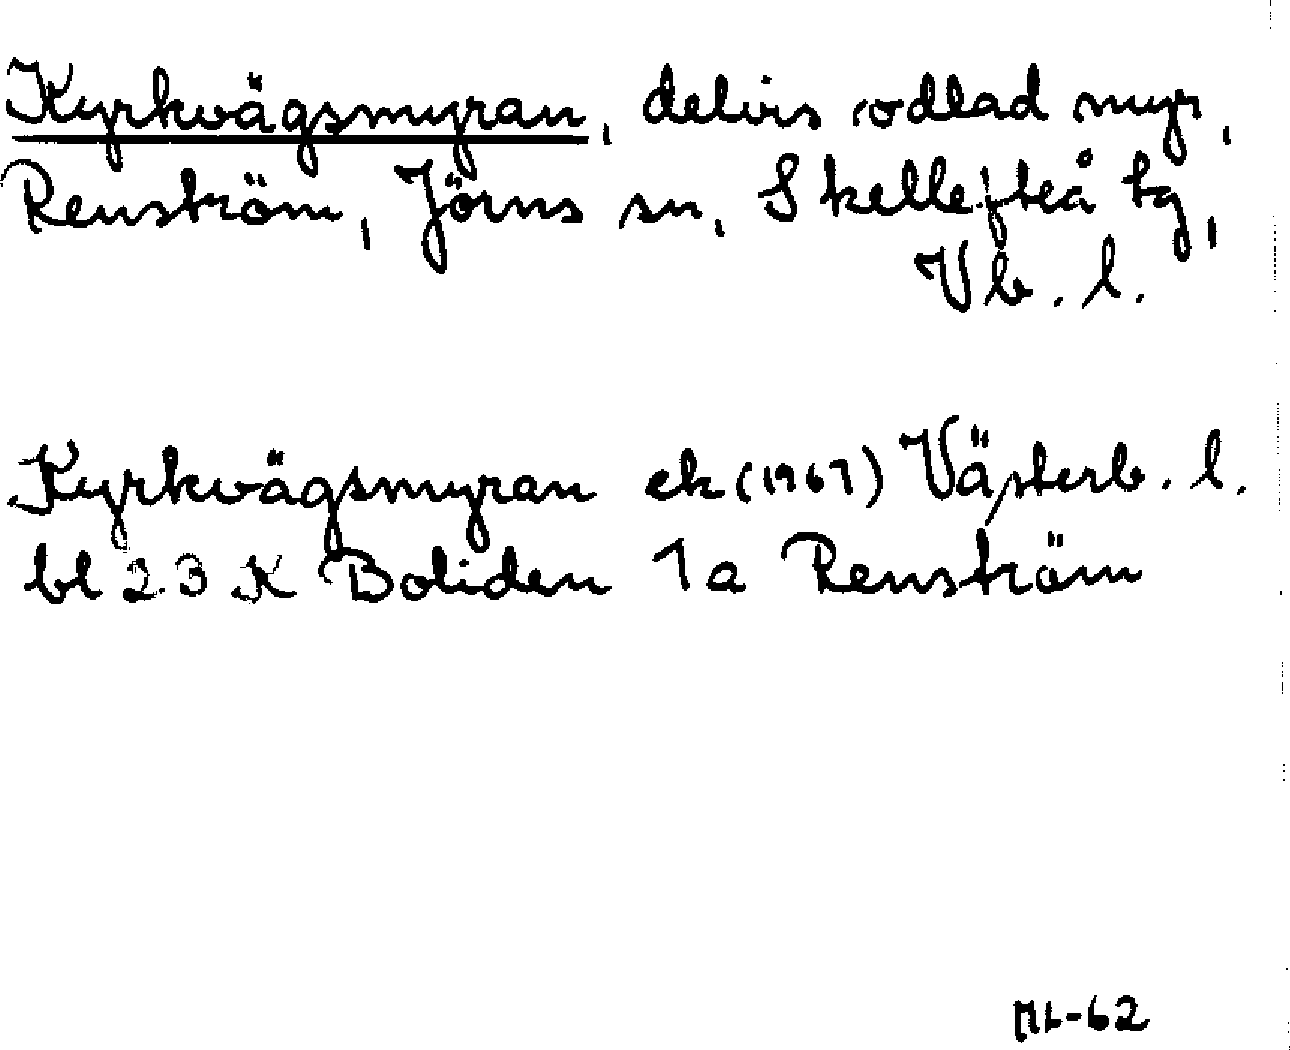 Kyrkvägsmyran, delvis odlad myr,
Renström, Jörns sn, Skellefteå tg,
Vb. l.
Kyrkvägsmyran ek (1961) Västerb. l.
bl 23 K Boliden 1a Renström